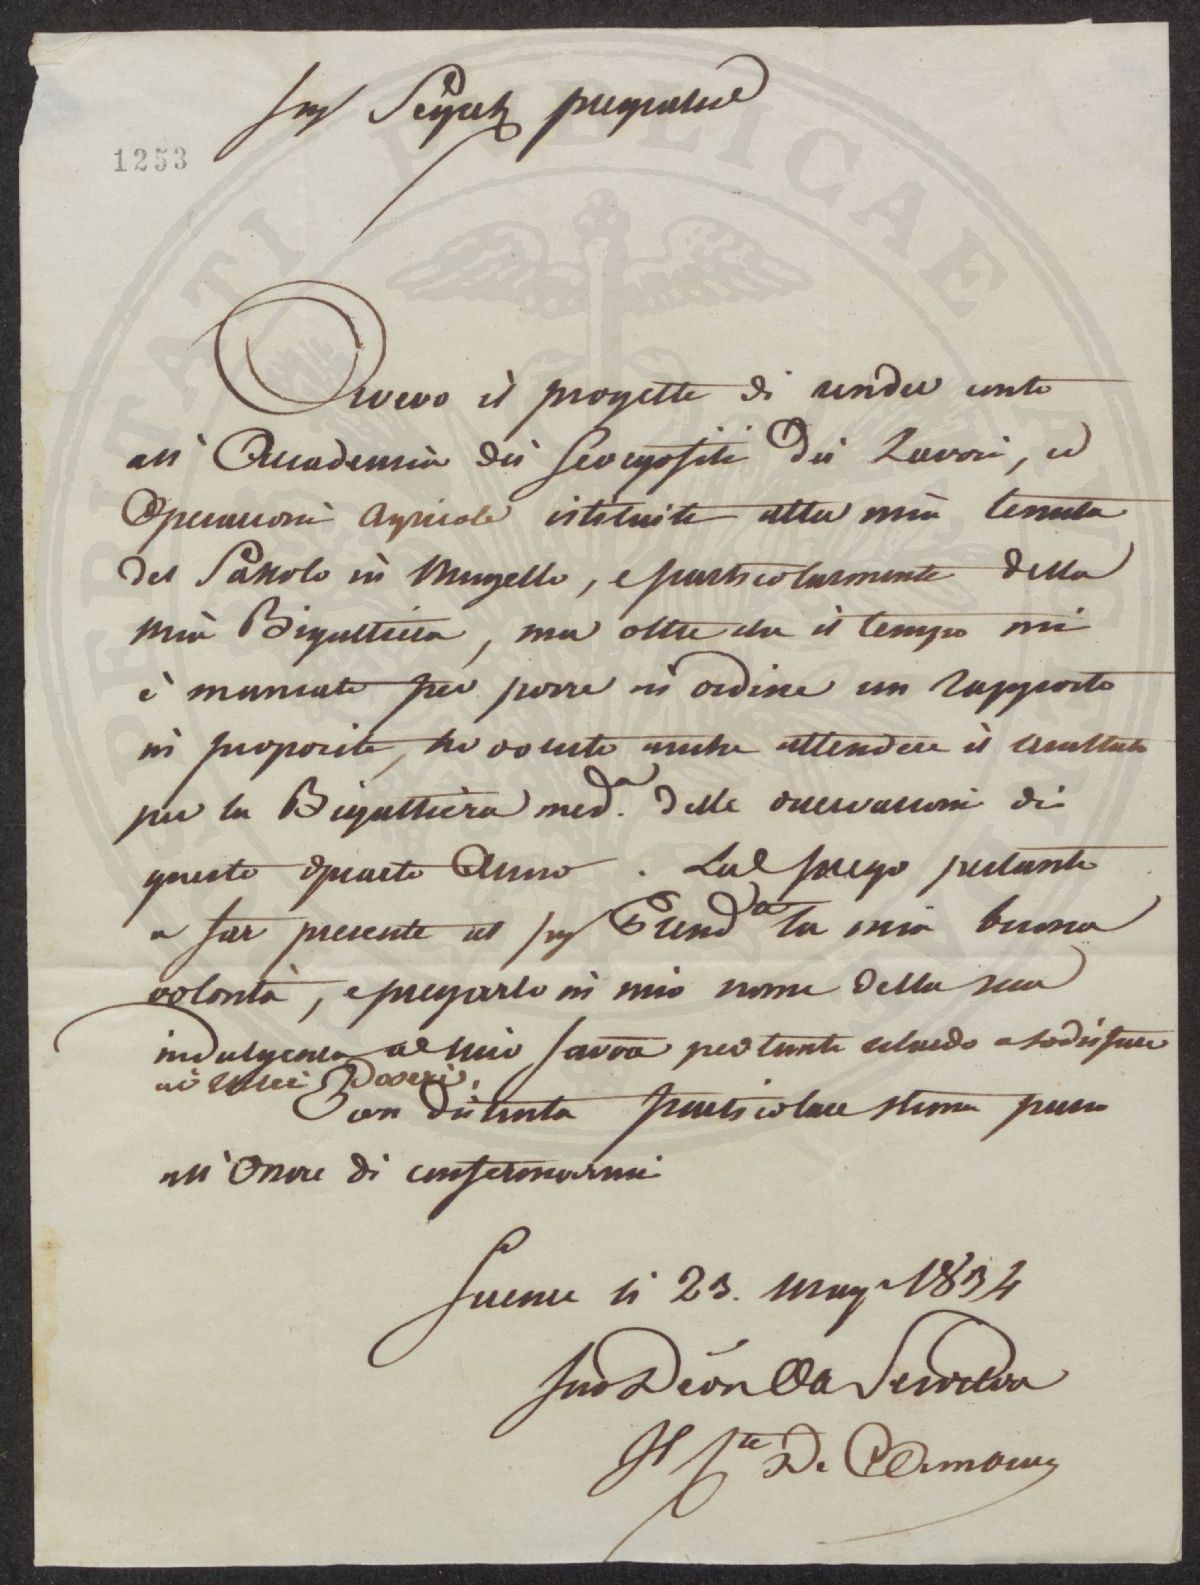 Sig. Segret. pregiatis.e
1253
Avevo il progetto di render conto
all' Accademia dei Georgofili dei Lavori, ed
Operazioni Agricole istituite alla mia tenuta
del Palsolo in Mugello, e particolarmente della
mia Bigattiera, ma oltre che il tempo mi
è mancato per porre in ordine un rapporto
in proposito, ho voluto anche attendere il resultato
per la Bigattiera med.a delle osservazioni di
questo quarto Anno. La prego pertanto
a far presente al Sig. Presid.te la mia buona
volontà, e pregarlo in mio nome della sua
indulgenza al mio pertanto ritardo a sodisfare
ai miei Doveri.
Con distinta particolare stima passo
all' Onore di confermarmi
Firenze li 23. Mag.o 1834
Suo Servitore